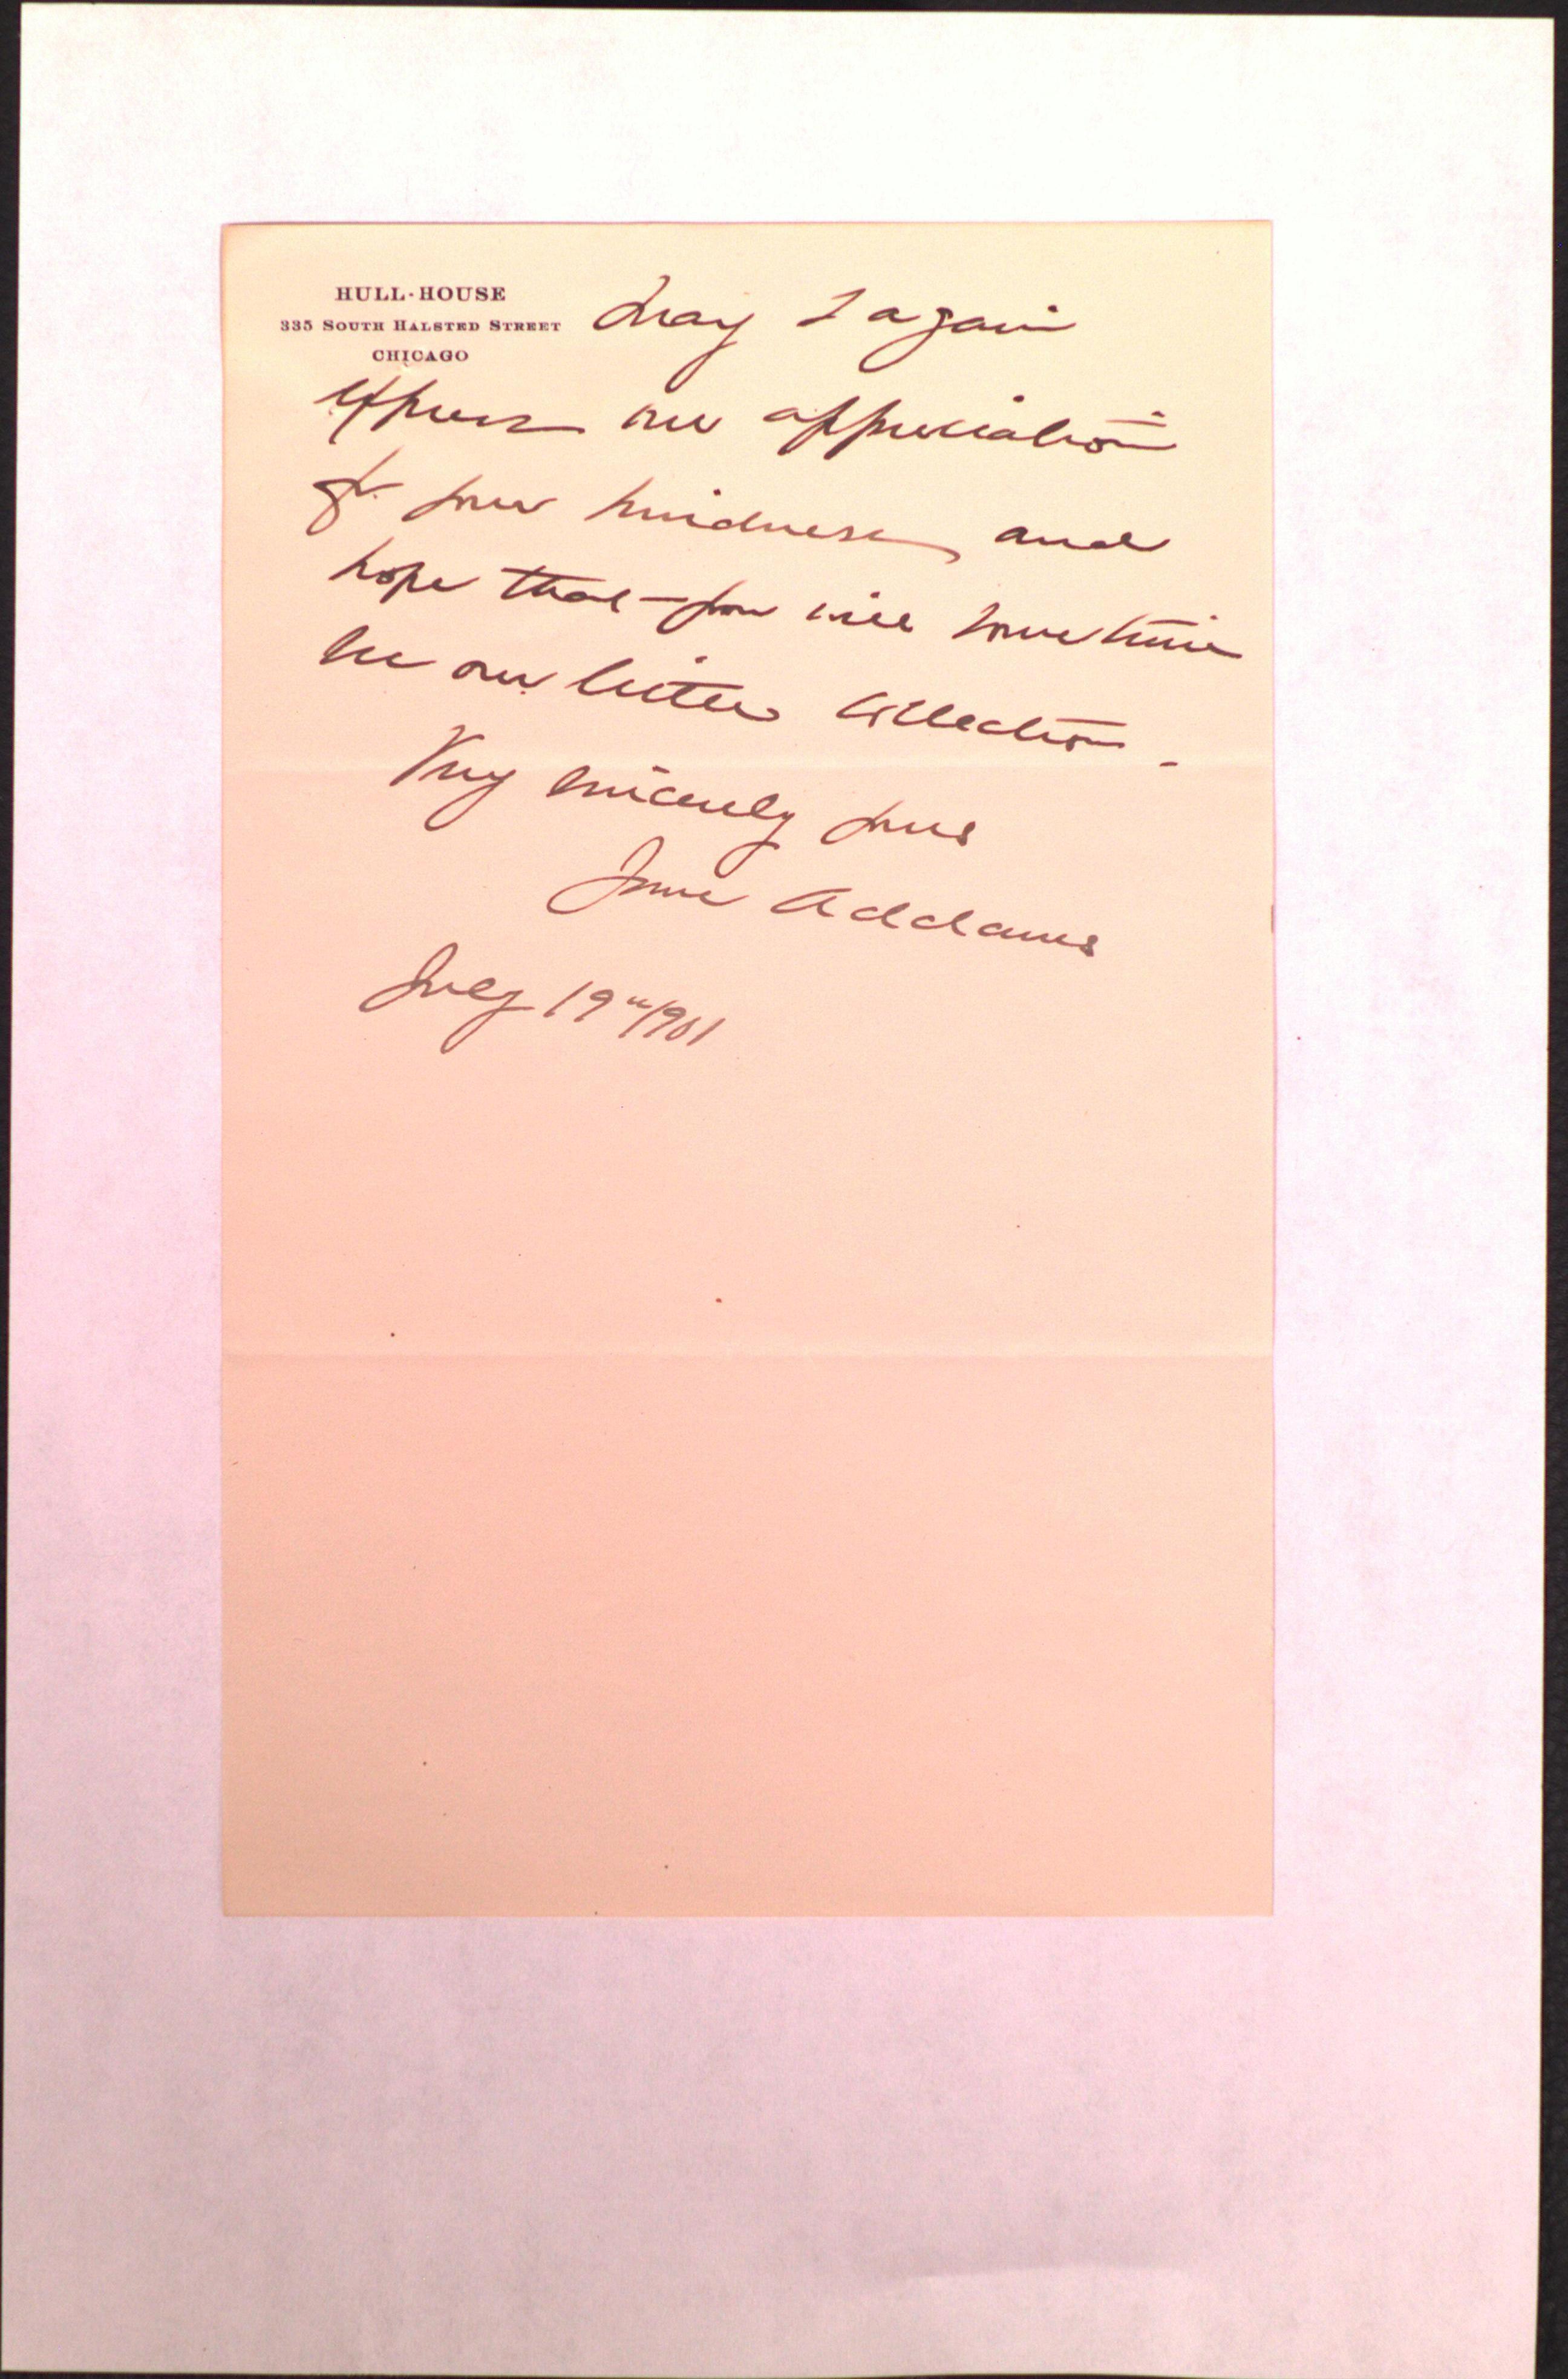 HULL-HOUSE
335 SOUTH HALSTED STREET
CHICAGO
May I again
express our appreciation
of your kindness, and
hope that you will sometime
see our little collection.
Very sincerely yours
Jane Addams
July 19" 1901